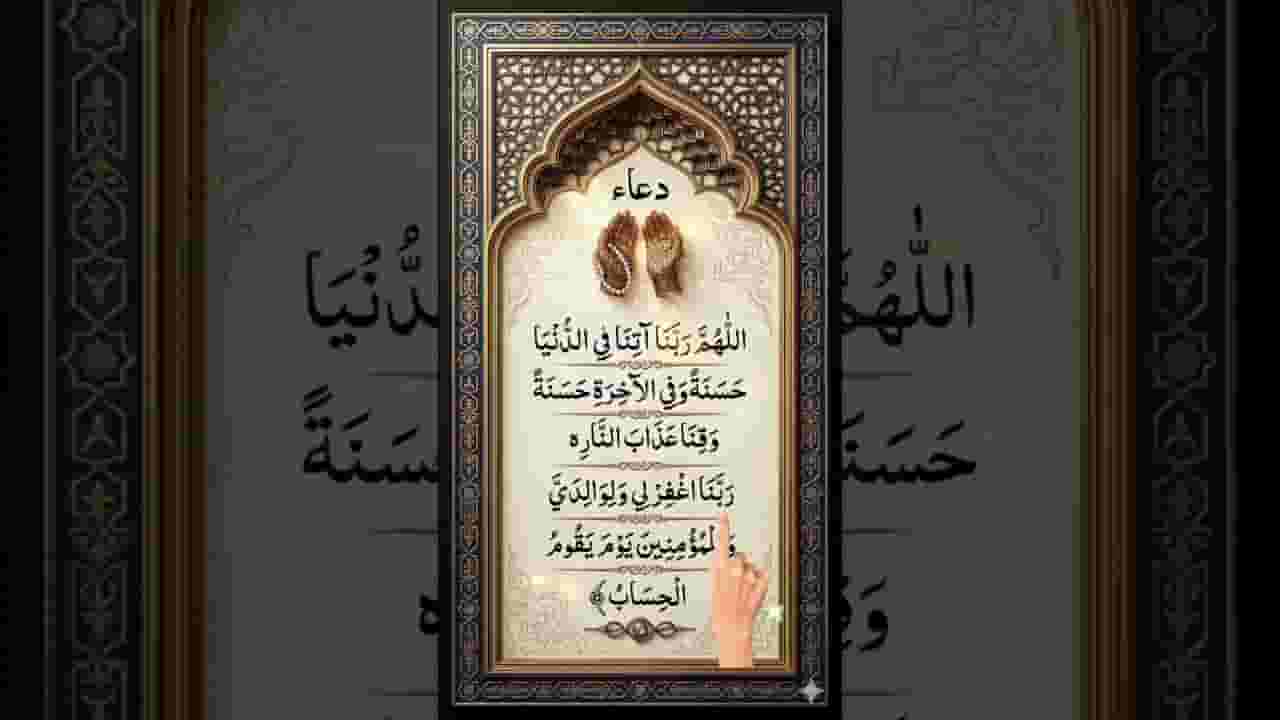 دعاء
اللّٰهُمَّ رَبَّنَا آتِنَا فِي الدُّنْيَا
حَسَنَةً وَفِي الآخِرَةِ حَسَنَةً
وَقِنَا عَذَابَ النَّارِه
رَبَّنَا اغْفِرْ لِي وَلِوَالِدَيَّ
وَلْمُؤْمِنِينَ يَوْمَ يَقُومُ
الْحِسَابُ﴾